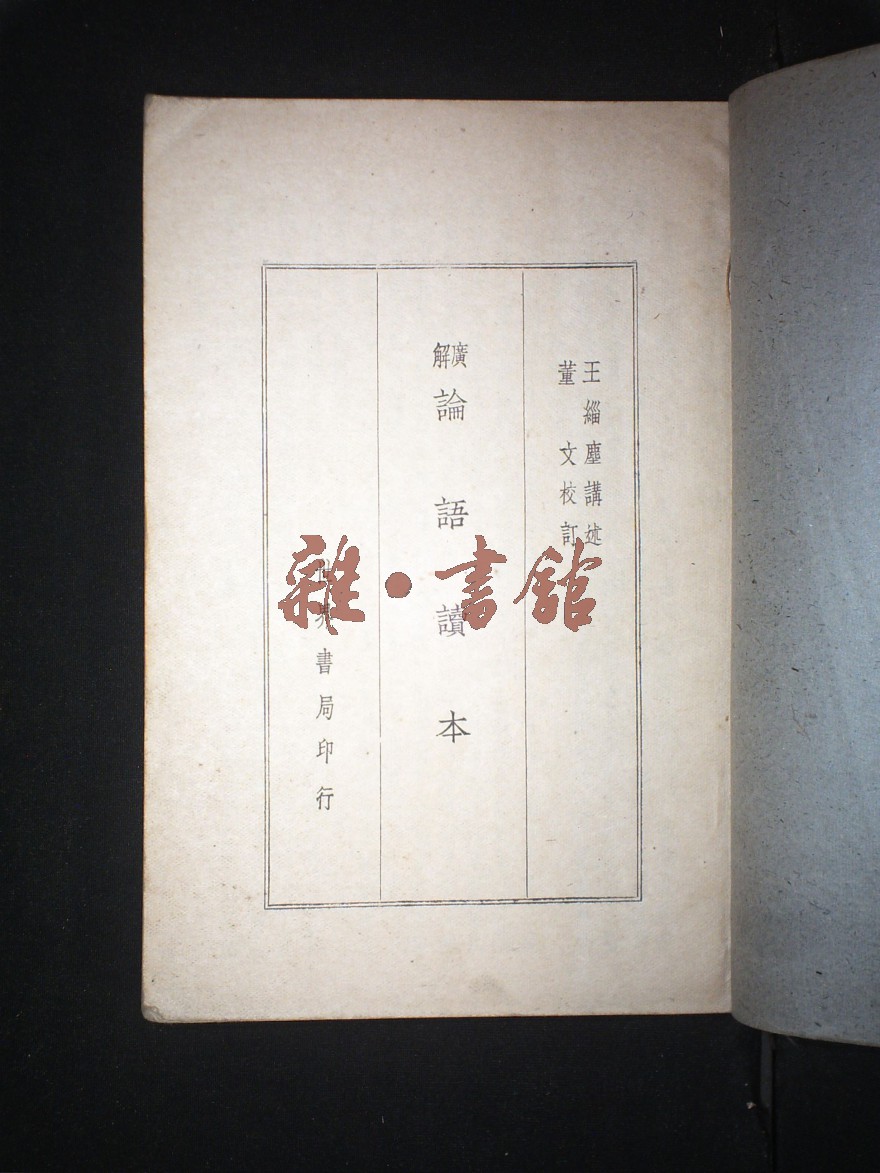 王緇塵講述
董文校訂
廣解
論語讀本
世界書局印行
雜·書館